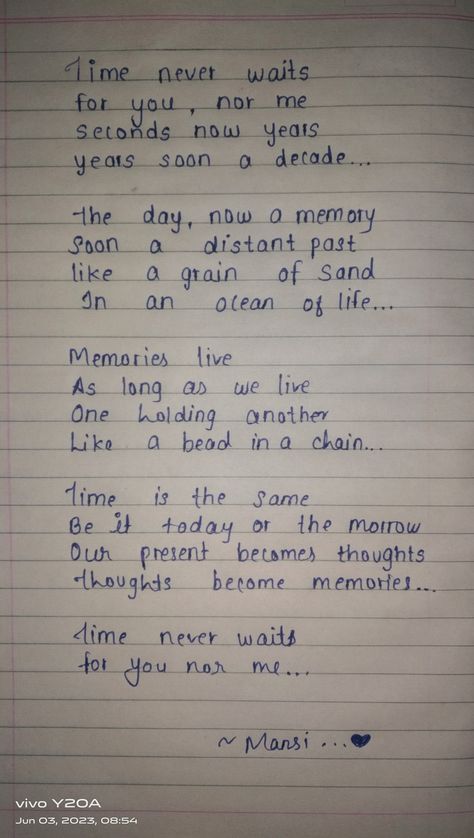 Time never waits
for you, nor me
seconds now years
years soon a decade...
the day, now a memory
soon a distant past
like a grain of sand
In an ocean of life...
Memories live
As long as we live
One holding another
Like a bead in a chain...
Time is the same
Be it today or the morrow
Our present becomes thoughts
thoughts become memories...
Time never waits
for you nor me...
~ Mansi...♥
vivo Y20A
Jun 03, 2023, 08:54